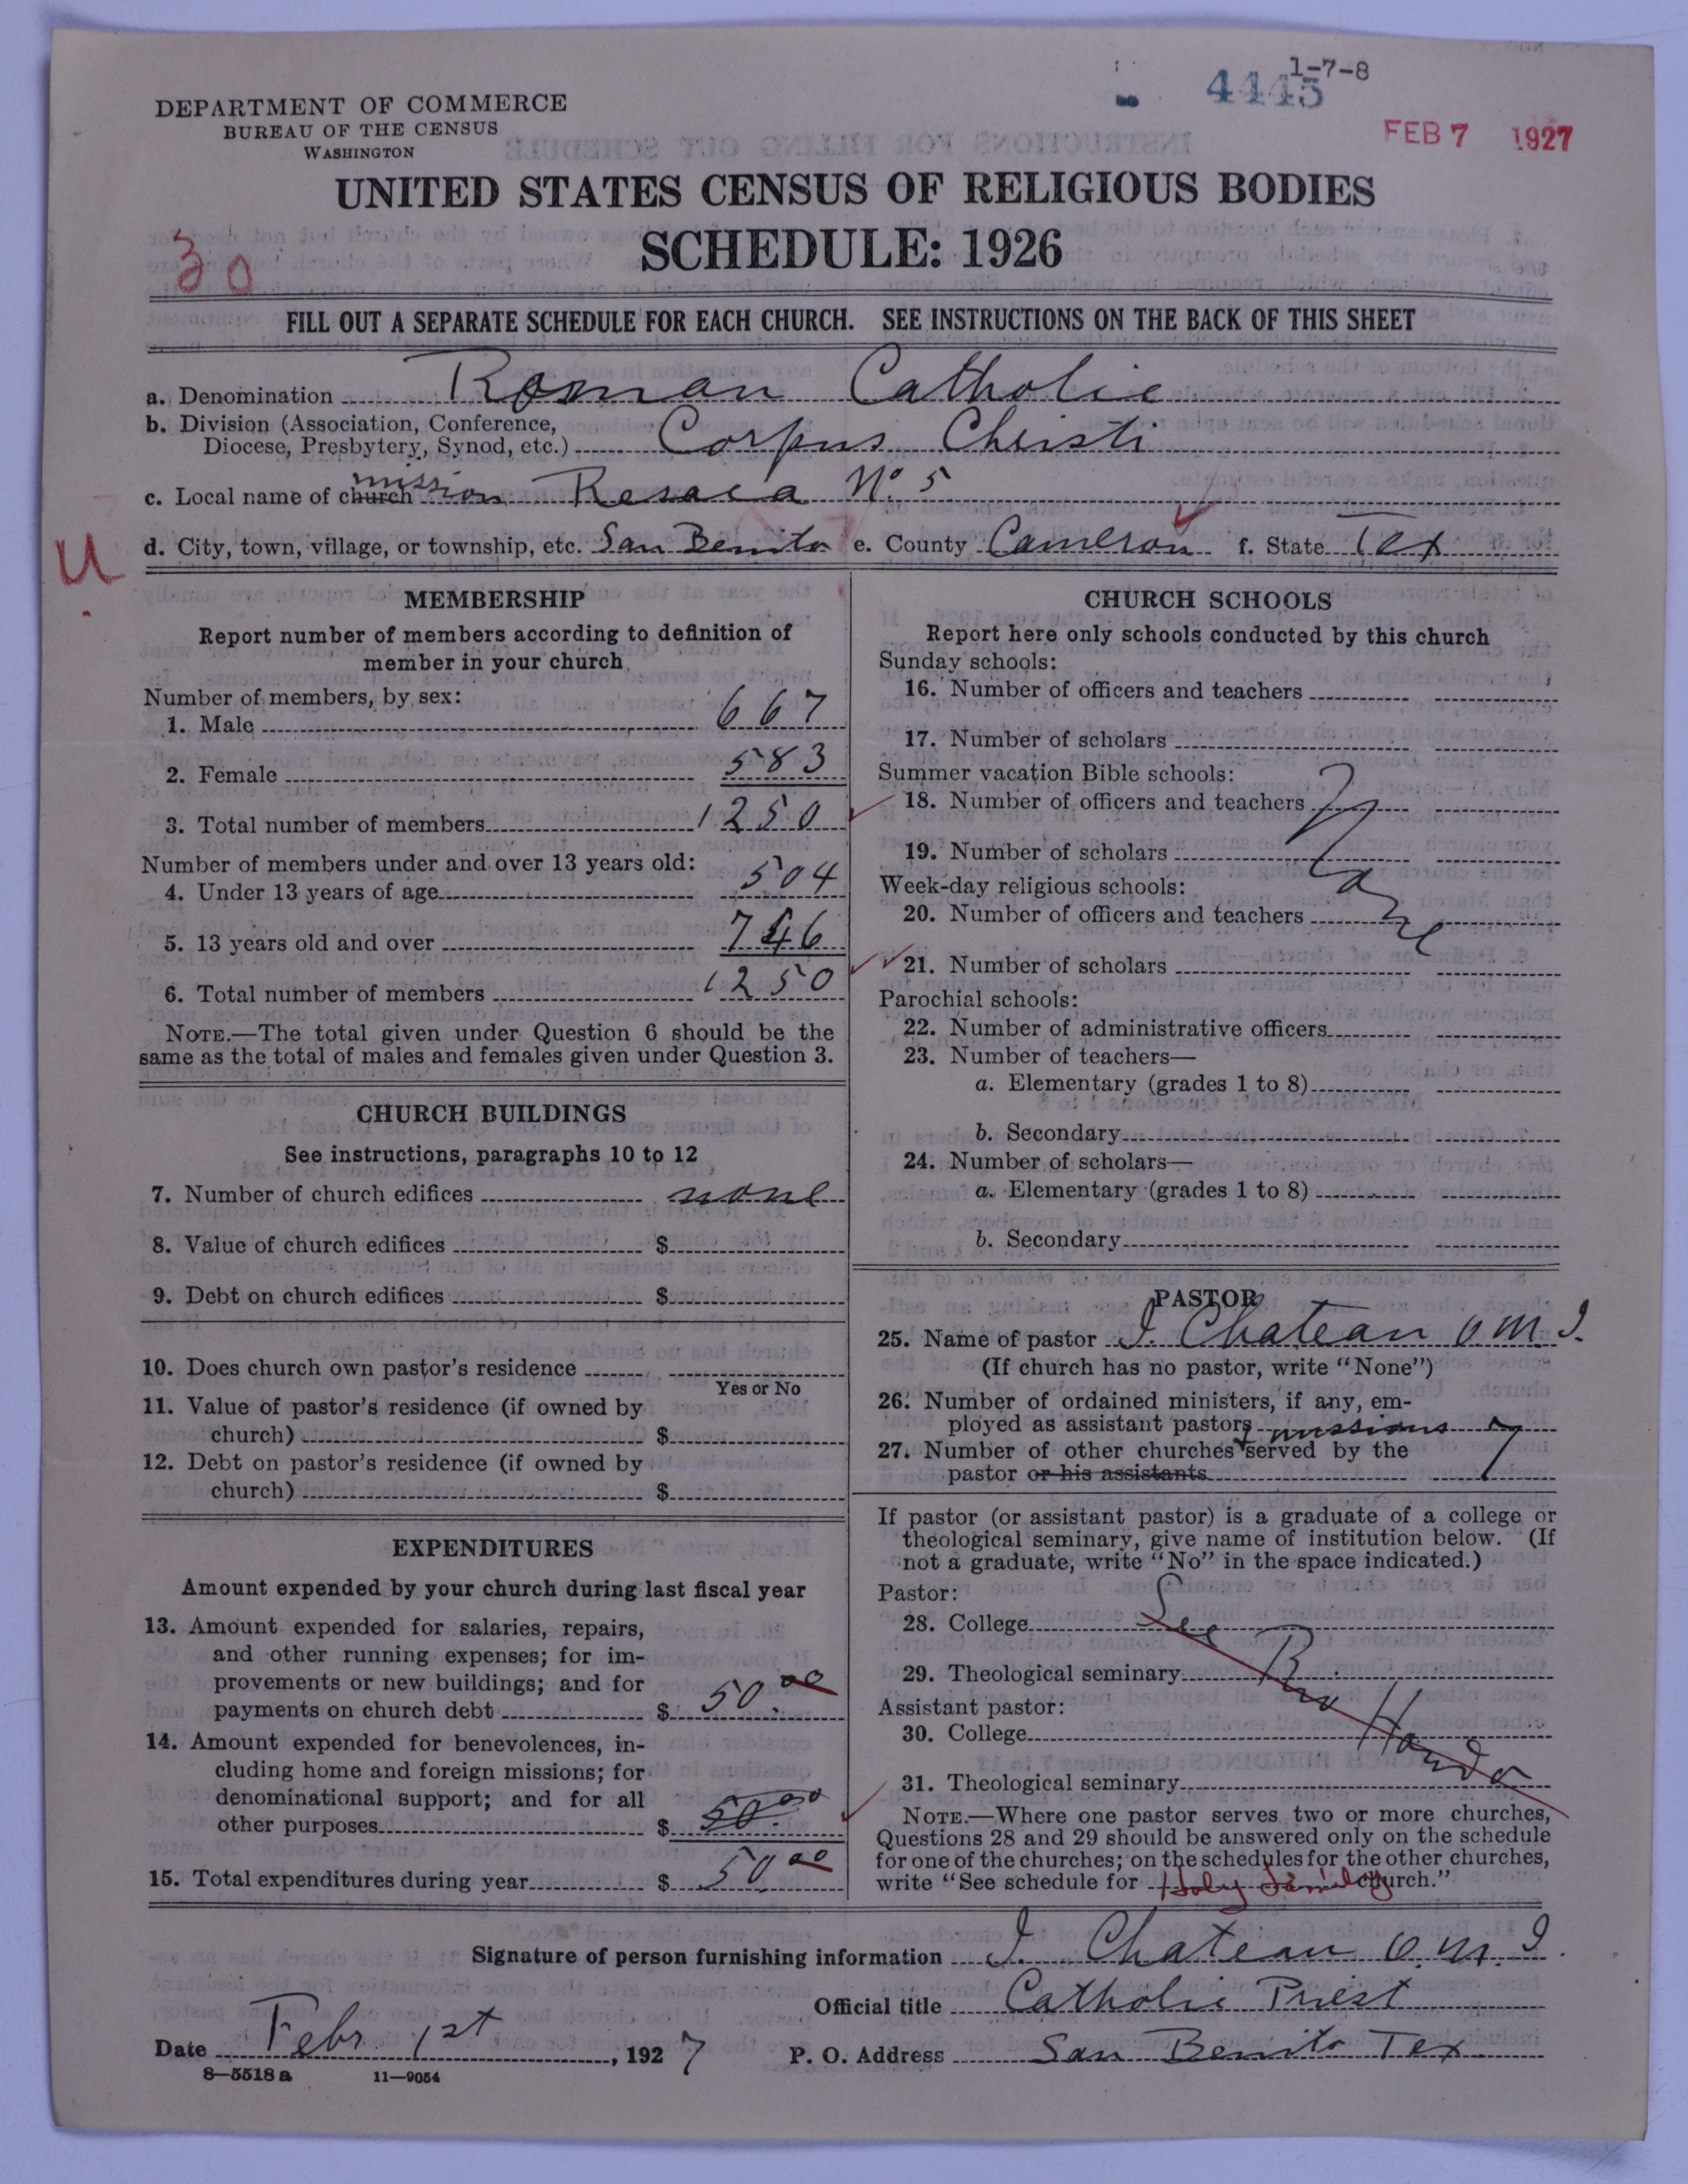 1-7-8
4445
FEB 7 1927
DEPARTMENT OF COMMERCE
BUREAU OF THE CENSUS
WASHINGTON
UNITED STATES CENSUS OF RELIGIOUS BODIES
SCHEDULE: 1926
30
FILL OUT A SEPARATE SCHEDULE FOR EACH CHURCH. SEE INSTRUCTIONS ON THE BACK OF THIS SHEET
a. Denomination Roman Catholic
b. Division (Association, Conference,
Diocese, Presbytery, Synod, etc.) Corpus Christi
c. Local name of church mission Resaca No 5
U
d. City, town, village, or township, etc. San Benito e. County Cameron f. State Tex
MEMBERSHIP
Report number of members according to definition of
member in your church
Number of members, by sex:
1. Male 667
2. Female 583
3. Total number of members 1250
Number of members under and over 13 years old:
4. Under 13 years of age 504
5. 13 years old and over 746
6. Total number of members 1250
NOTE.—The total given under Question 6 should be the
same as the total of males and females given under Question 3.
CHURCH BUILDINGS
See instructions, paragraphs 10 to 12
7. Number of church edifices none
8. Value of church edifices $
9. Debt on church edifices $
10. Does church own pastor's residence
Yes or No
11. Value of pastor's residence (if owned by
church) $
12. Debt on pastor's residence (if owned by
church) $
EXPENDITURES
Amount expended by your church during last fiscal year
13. Amount expended for salaries, repairs,
and other running expenses; for im-
provements or new buildings; and for
payments on church debt $ 50.00
14. Amount expended for benevolences, in-
cluding home and foreign missions; for
denominational support; and for all
other purposes $ 50.00
15. Total expenditures during year $ 50.00
CHURCH SCHOOLS
Report here only schools conducted by this church
Sunday schools:
16. Number of officers and teachers
17. Number of scholars
Summer vacation Bible schools:
18. Number of officers and teachers
19. Number of scholars
Week-day religious schools:
20. Number of officers and teachers
21. Number of scholars
Parochial schools:
22. Number of administrative officers
23. Number of teachers—
a. Elementary (grades 1 to 8)
b. Secondary
24. Number of scholars—
a. Elementary (grades 1 to 8)
b. Secondary
PASTOR
25. Name of pastor J. Chateau O.M.I.
(If church has no pastor, write "None")
26. Number of ordained ministers, if any, em-
ployed as assistant pastors
& missions
27. Number of other churches served by the
pastor or his assistants 7
If pastor (or assistant pastor) is a graduate of a college or
theological seminary, give name of institution below. (If
not a graduate, write "No" in the space indicated.)
Pastor:
28. College See
29. Theological seminary Rio
Assistant pastor:
30. College Hondo
31. Theological seminary
NOTE.—Where one pastor serves two or more churches,
Questions 28 and 29 should be answered only on the schedule
for one of the churches; on the schedules for the other churches,
write "See schedule for Holy Family church."
Signature of person furnishing information J. Chateau O.M.I.
Official title Catholic Priest
Date Febr. 1st, 1927 P. O. Address San Benito Tex
8—5518 a 11—9054